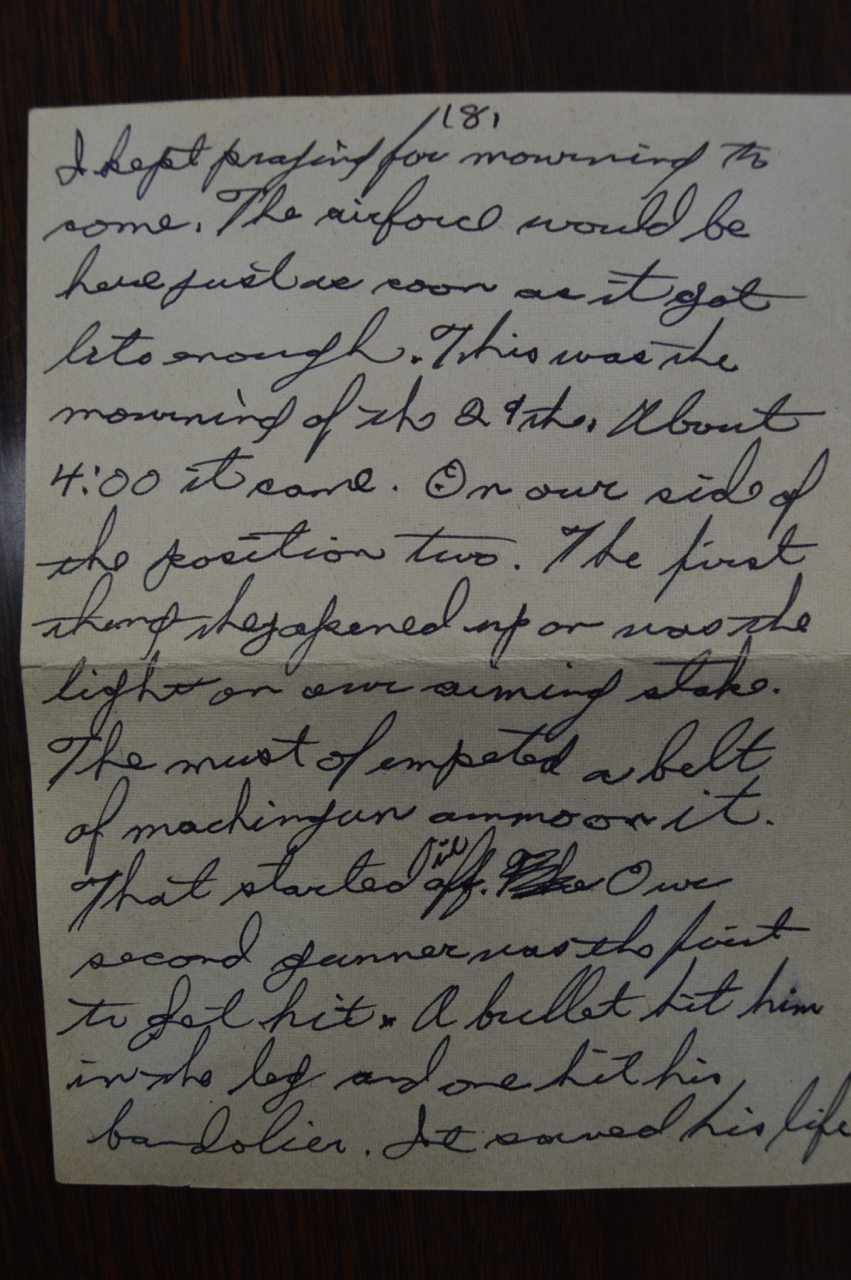 18,
I kept praying for mourning to
come. The airforce would be
here just as soon as it got
lite enough. This was the
mourning of th 29th. About
4:00 it came. On our side of
the position two. The first
thing they opened up on was the
light on our aiming stake.
The must of empeted a belt
of machingun ammo on it.
That started it off. Our
second gunner was the first
to get hit. A bullet hit him
in the leg and one hit his
bandolier. It saved his life